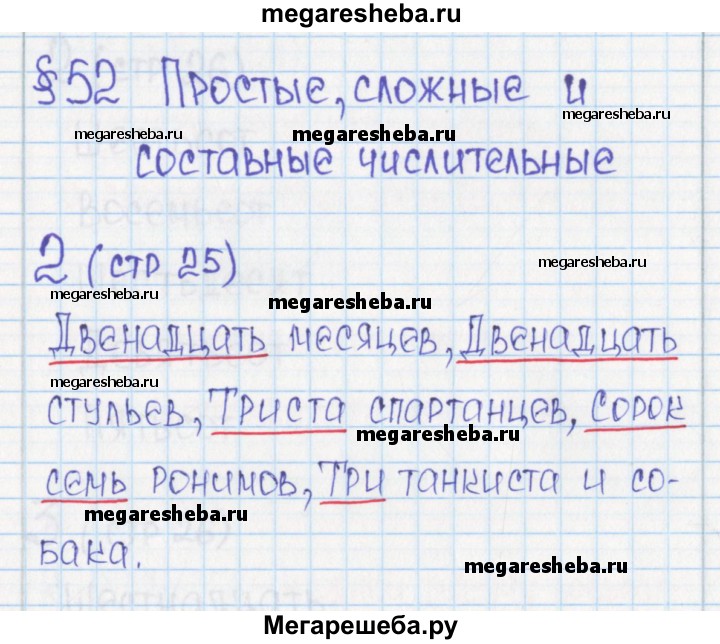 megaresheba.ru
§52 Простые, сложные и
megaresheba.ru megaresheba.ru megaresheba.ru
составные числительные
2 (стр 25)
megaresheba.ru megaresheba.ru megaresheba.ru
Двенадцать месяцев, Двенадцать
megaresheba.ru
стульев, Триста спартанцев, Сорок
megaresheba.ru
семь ронимов, Три танкиста и со-
megaresheba.ru
бака.
megaresheba.ru
Мегарешеба.ру